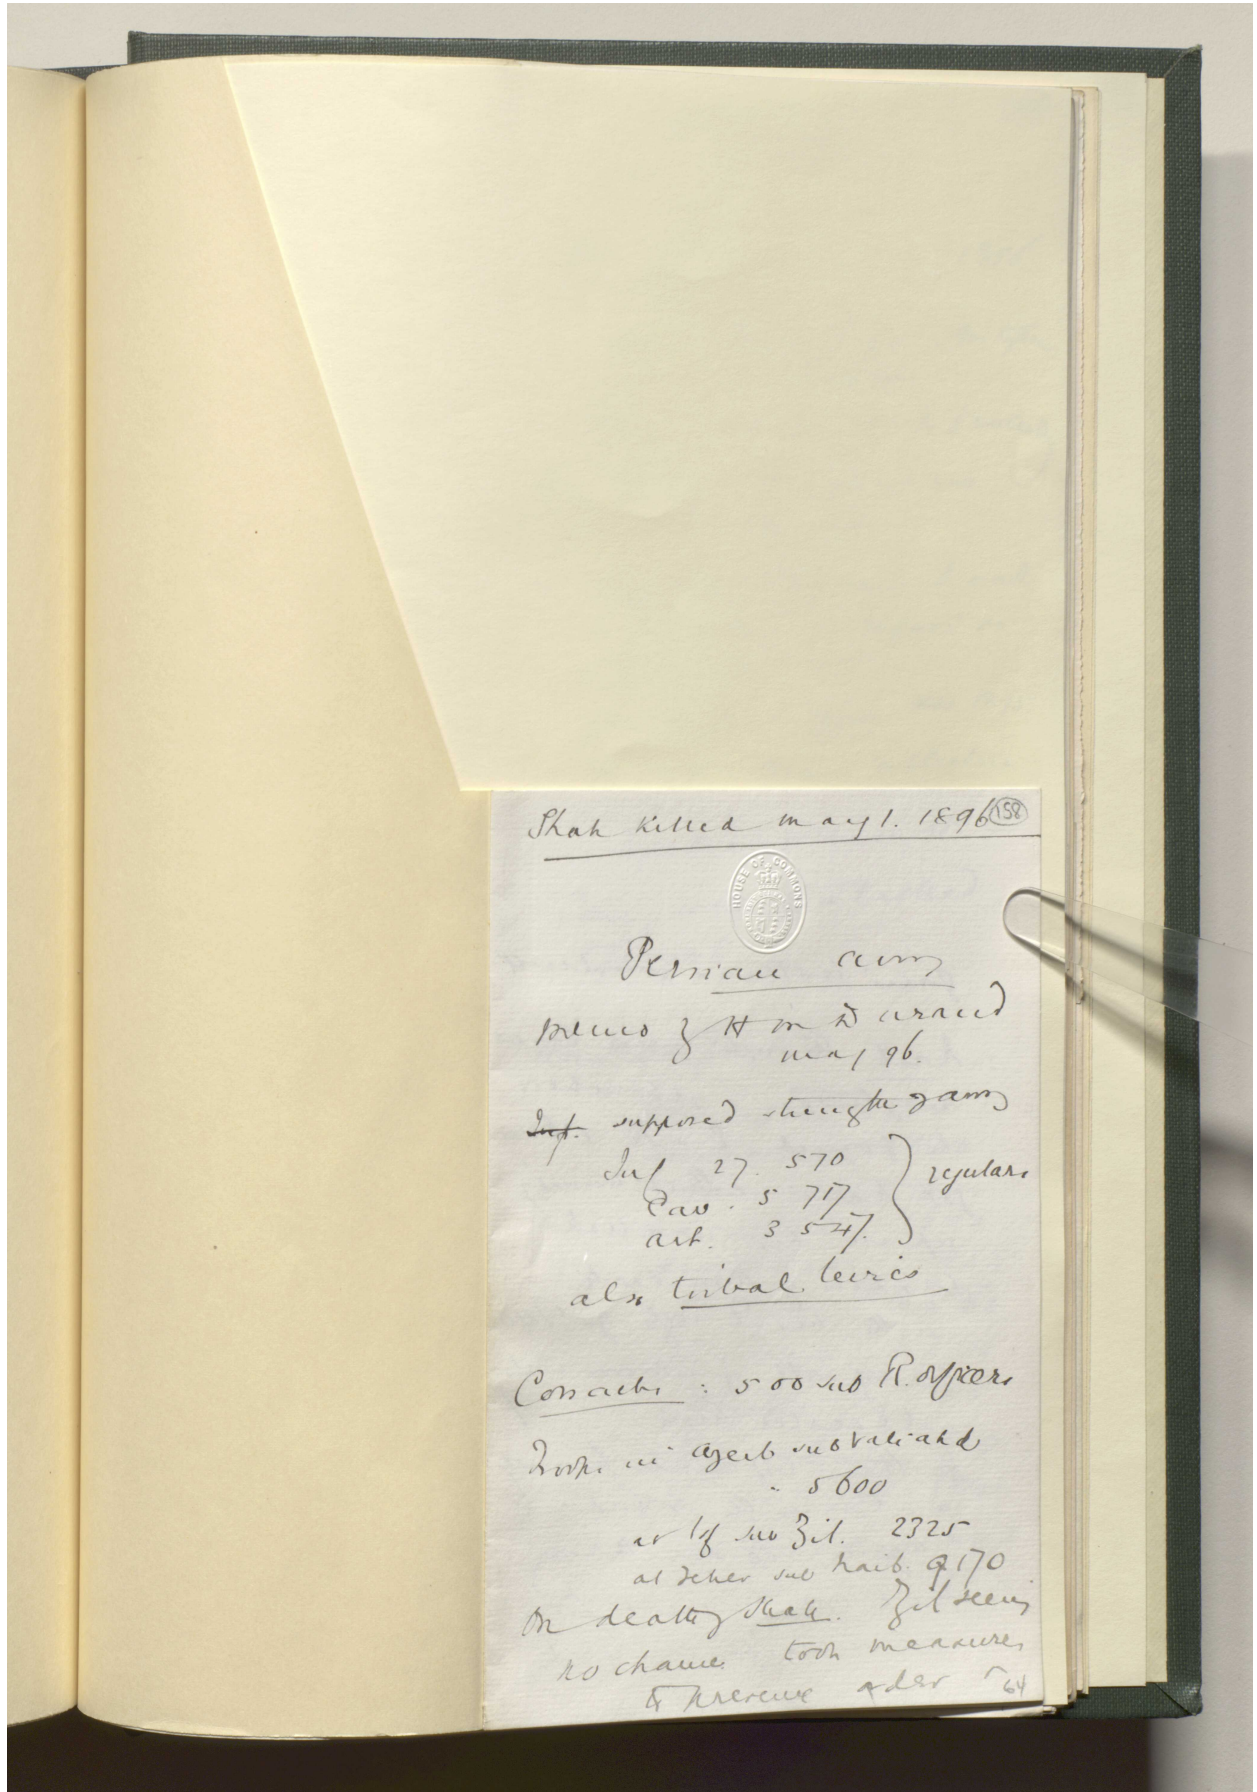 Shah killed May 1. 1896 158
HOUSE OF COMMONS
Persian army
Memo of H M Durand
May 96.
Inf. supposed strength of army
Inf 27. 570
Cav. 5 717
art. 3 547.
regulars
also tribal levies
Cossacks : 500 sub R. officers
Troops in Azerb sub Valiahd
5600
at Isf sub Zil. 2325
at Teher sub Naib. 9170
On death of Shah. Zil seeing
no chance took measures
to preserve order
64